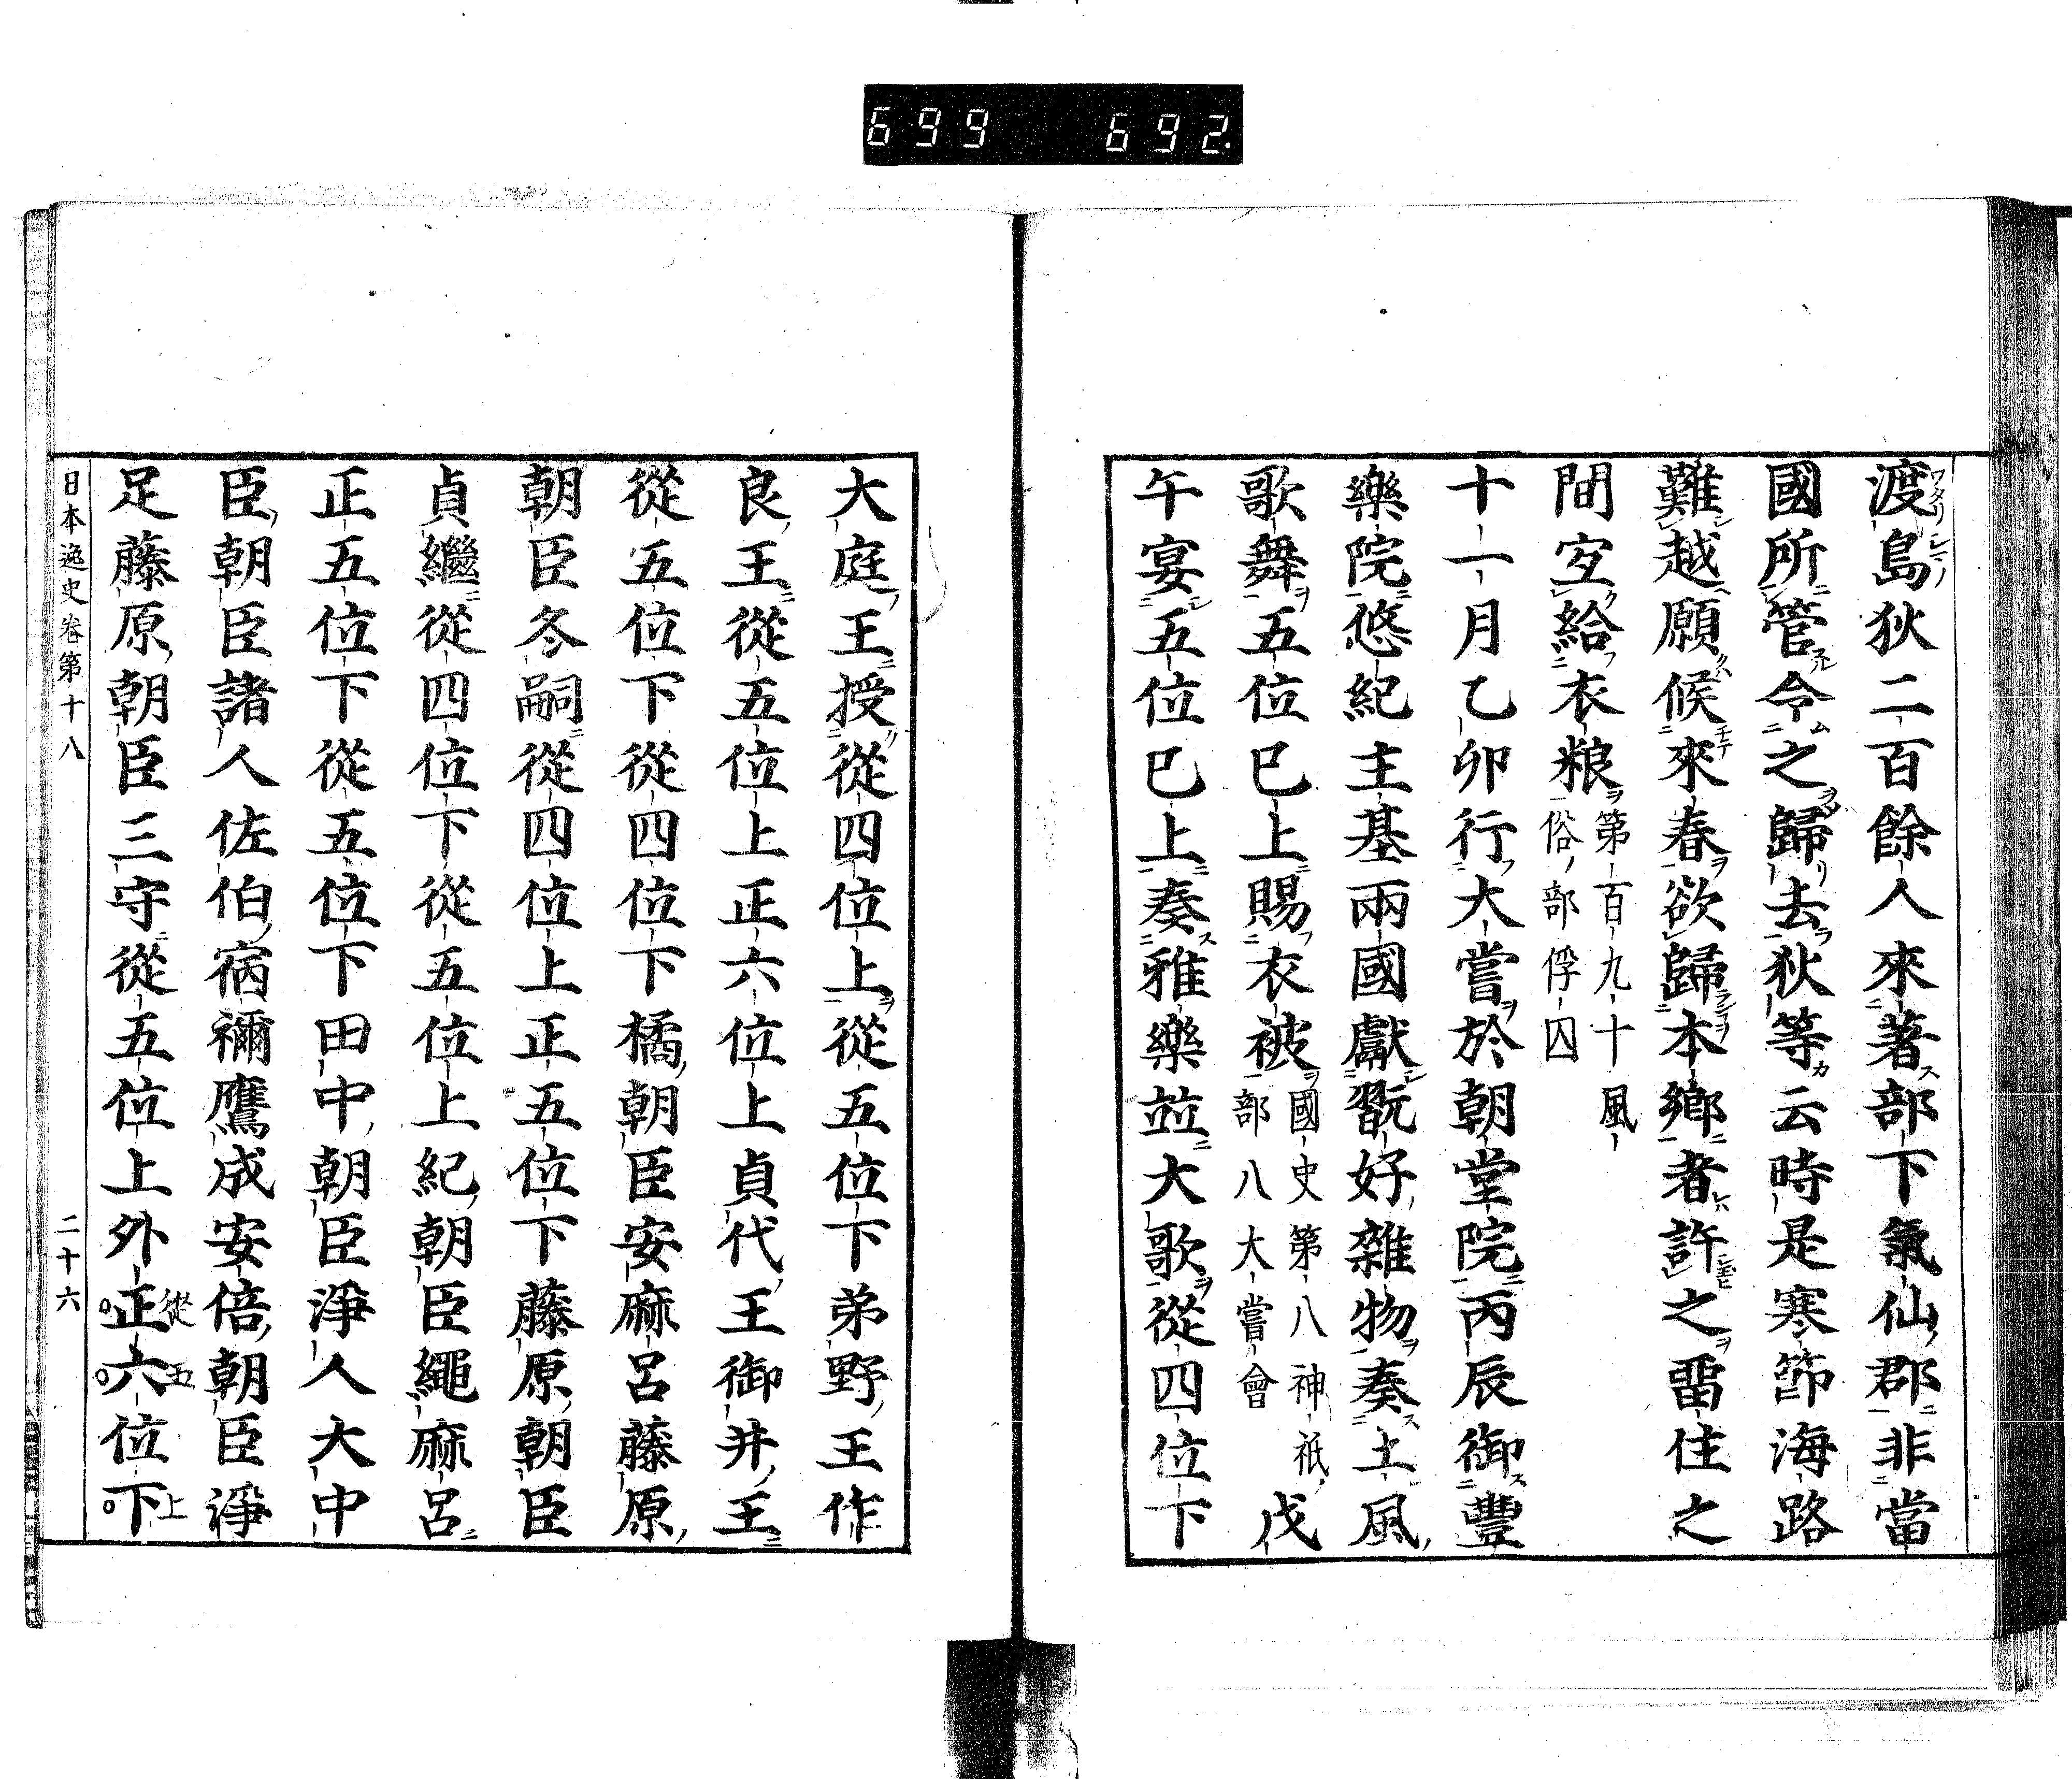 699 692
渡島狄二百餘人來著部下氣仙郡非當
國所管令之歸去狄等云時是寒節海路
難越願候來春欲歸本鄉者許之畱住之
間宐給衣粮第百九十風
俗部俘囚
十一月乙卯行大嘗於朝堂院丙辰御豐
樂院悠紀主基兩國獻翫好雜物奏土風
歌舞五位已上賜衣被國史第八神祇
部八大嘗會
戊
午宴五位已上奏雅樂並大歌從四位下
大庭王授從四位上從五位下弟野王作
良王從五位上正六位上貞代王御井王
從五位下從四位下橘朝臣安麻呂藤原
朝臣冬嗣從四位上正五位下藤原朝臣
貞繼從四位下從五位上紀朝臣繩麻呂
正五位下從五位下田中朝臣淨人大中
臣朝臣諸人佐伯宿禰鷹成安倍朝臣淨
足藤原朝臣三守從五位上外正六位下
從五上
日本逸史卷第十八 二十六